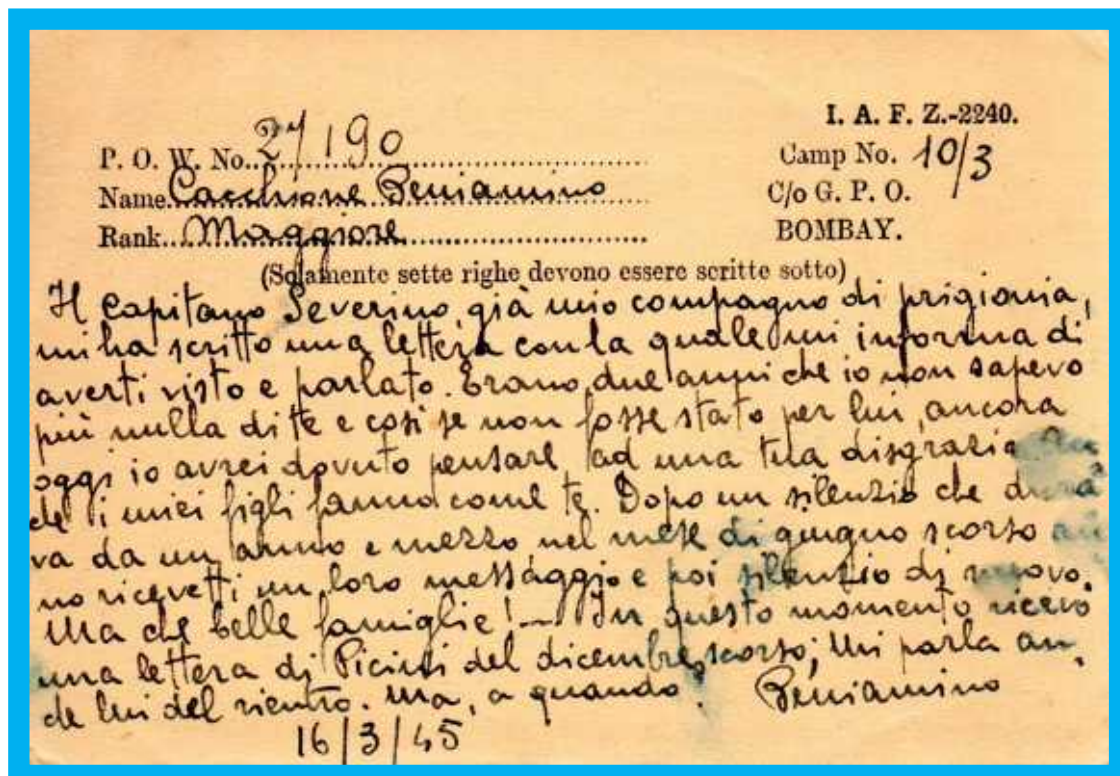 I. A. F. Z.-2240.
P. O. W. No. 27190
Camp No. 10/3
Name Cacchione Beniamino
C/o G. P. O.
Rank Maggiore
BOMBAY.
(Solamente sette righe devono essere scritte sotto)
Il Capitano Severino, già mio compagno di prigionia,
mi ha scritto una lettera con la quale mi informa di
averti visto e parlato. Erano due anni che io non sapevo
più nulla di te e così se non fosse stato per lui, ancora
oggi io avrei dovuto pensare, ad una tua disgrazia. An
che i miei figli fanno come te. Dopo un silenzio che dura
va da un anno e mezzo, nel mese di giugno scorso an
no ricevetti un loro messaggio e poi silenzio di nuovo.
Ma che belle famiglie! - In questo momento ricevo
una lettera di Picinsi del dicembre scorso; Mi parla an
che lui del rientro. Ma, a quando? Beniamino
16/3/45